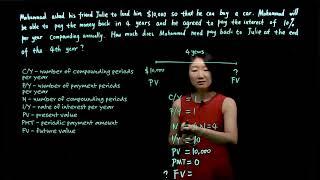 Mohammad asked his friend Julie to lend him $10,000 so that he can buy a car. Mohammad will
be able to pay the money back in 4 years and he agreed to pay the interest of 10%
per year compounding annually. How much does Mohammad need pay back to Julie at the end
of the 4th year?
4 years
$10,000
?
PV
FV
C/Y – number of compounding periods
per year
P/Y – number of payment periods
per year
N – number of compounding periods
I/Y – rate of interest per year
PV – present value
PMT – periodic payment amount
FV – future value
C/Y = 1
P/Y = 1
N = 4
I/Y = 10
PV = 10,000
PMT = 0
? FV =